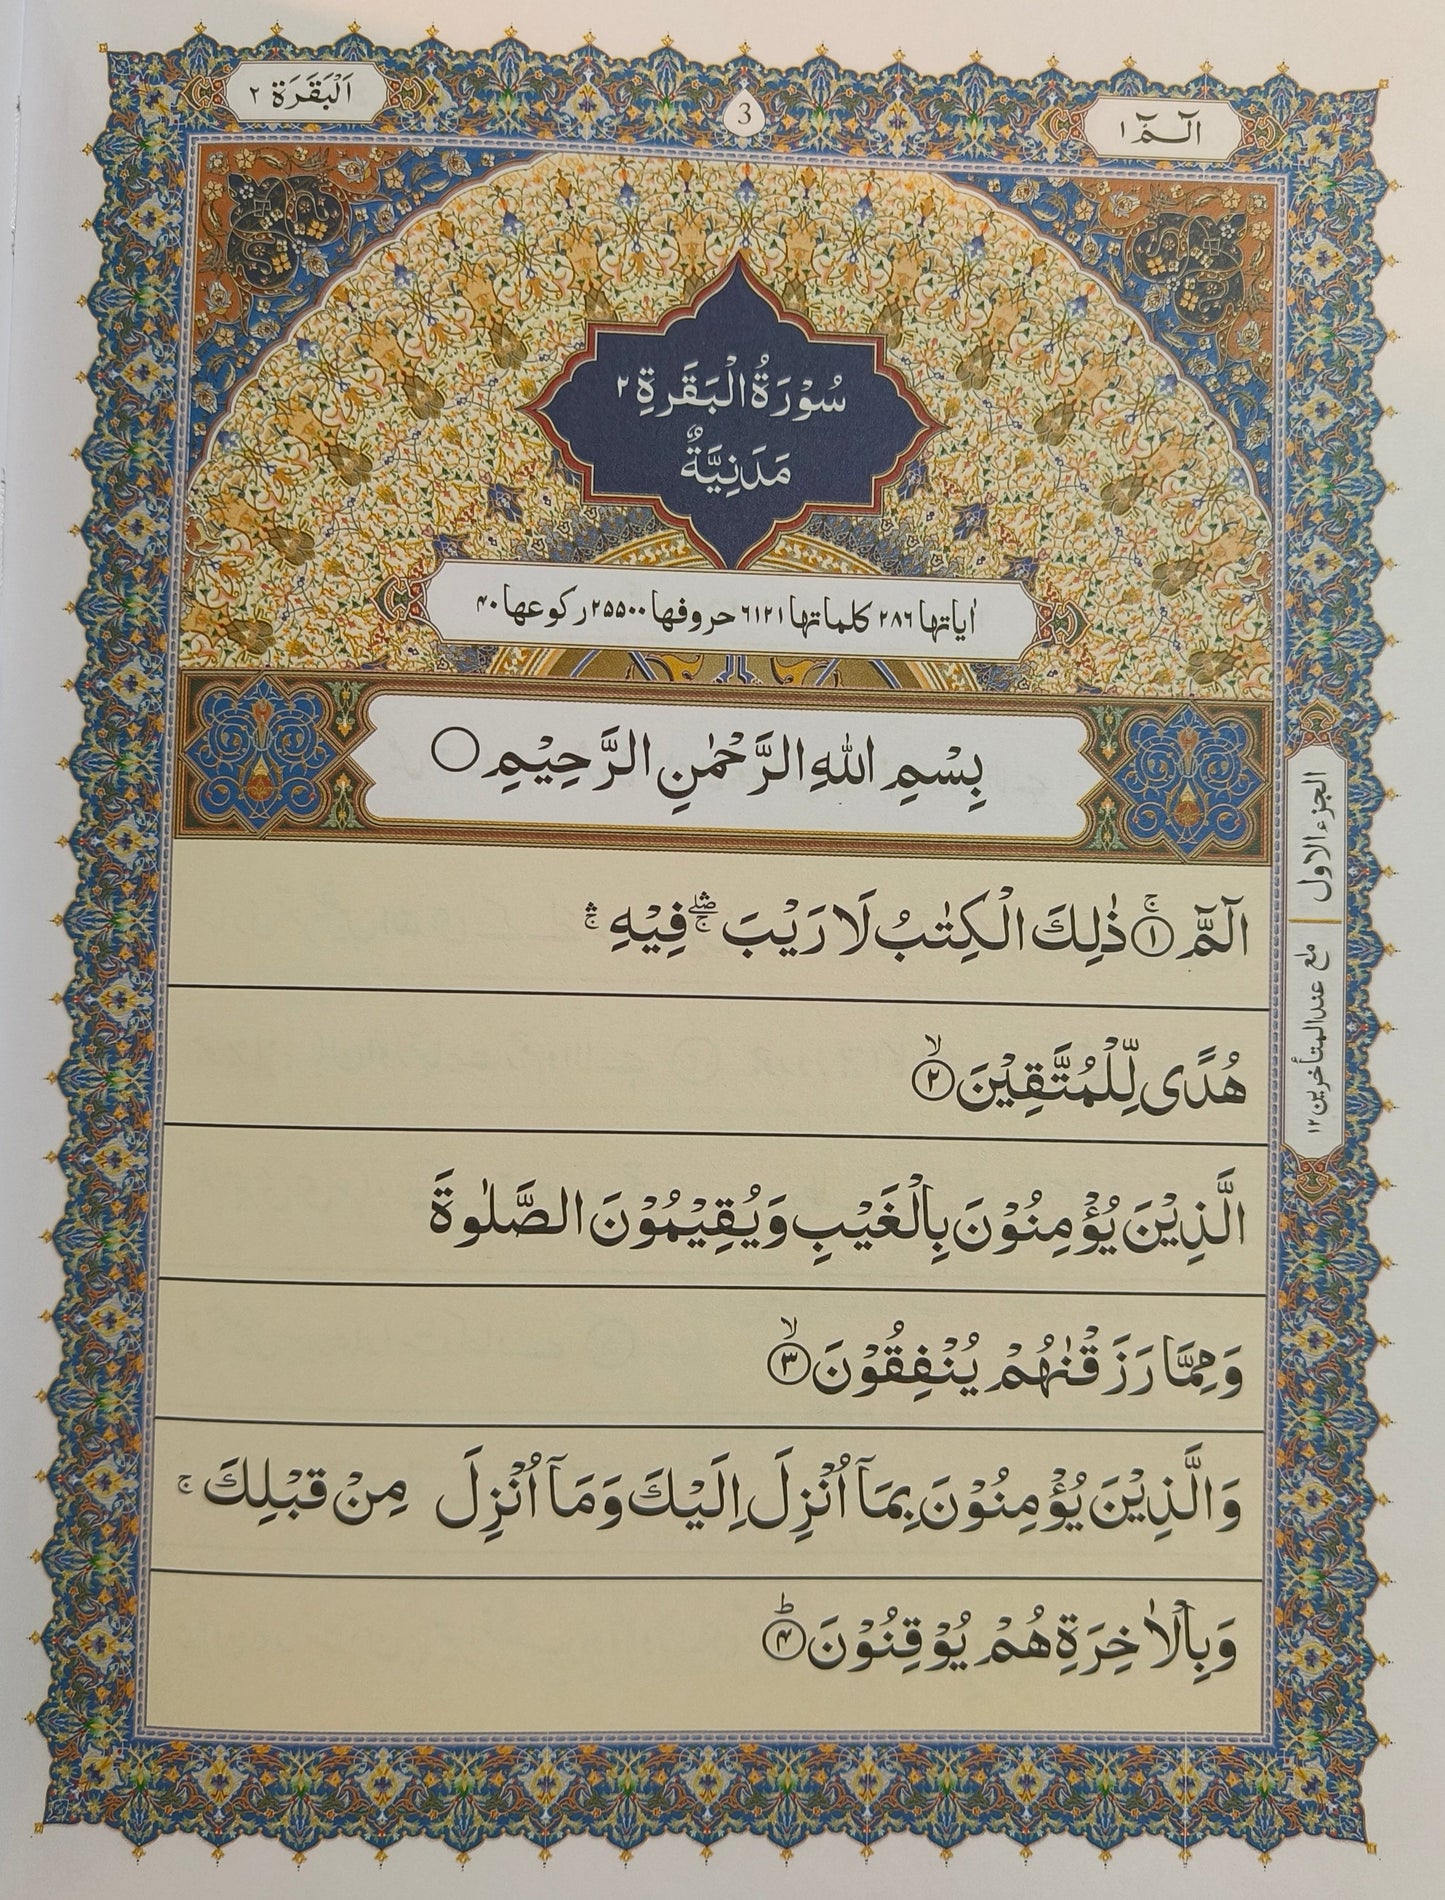 الٓـمّٓ ١
3
اَلْبَقَرَة ٢
سُوْرَةُ الْبَقَرَةِ ٢
مَدَنِيَّةٌ
اٰياتها ٢٨٦ كلماتها ٦١٢١ حروفها ٢٥٥٠٠ ركوعها ٤٠
بِسْمِ اللّٰهِ الرَّحْمٰنِ الرَّحِيْمِ ○
الٓمّٓ ۚ ١ ذٰلِكَ الْكِتٰبُ لَا رَيْبَ ۛۖۚ فِيْهِ ۛۚ
هُدًى لِّلْمُتَّقِيْنَ ۙ ٢
الَّذِيْنَ يُؤْمِنُوْنَ بِالْغَيْبِ وَيُقِيْمُوْنَ الصَّلٰوةَ
وَمِمَّا رَزَقْنٰهُمْ يُنْفِقُوْنَ ۙ ٣
وَالَّذِيْنَ يُؤْمِنُوْنَ بِمَآ اُنْزِلَ اِلَيْكَ وَمَآ اُنْزِلَ مِنْ قَبْلِكَ ۚ
وَبِالْاٰخِرَةِ هُمْ يُوْقِنُوْنَ ؕ ٤
الجزء الاول
مع عند المتأخرين ١٢